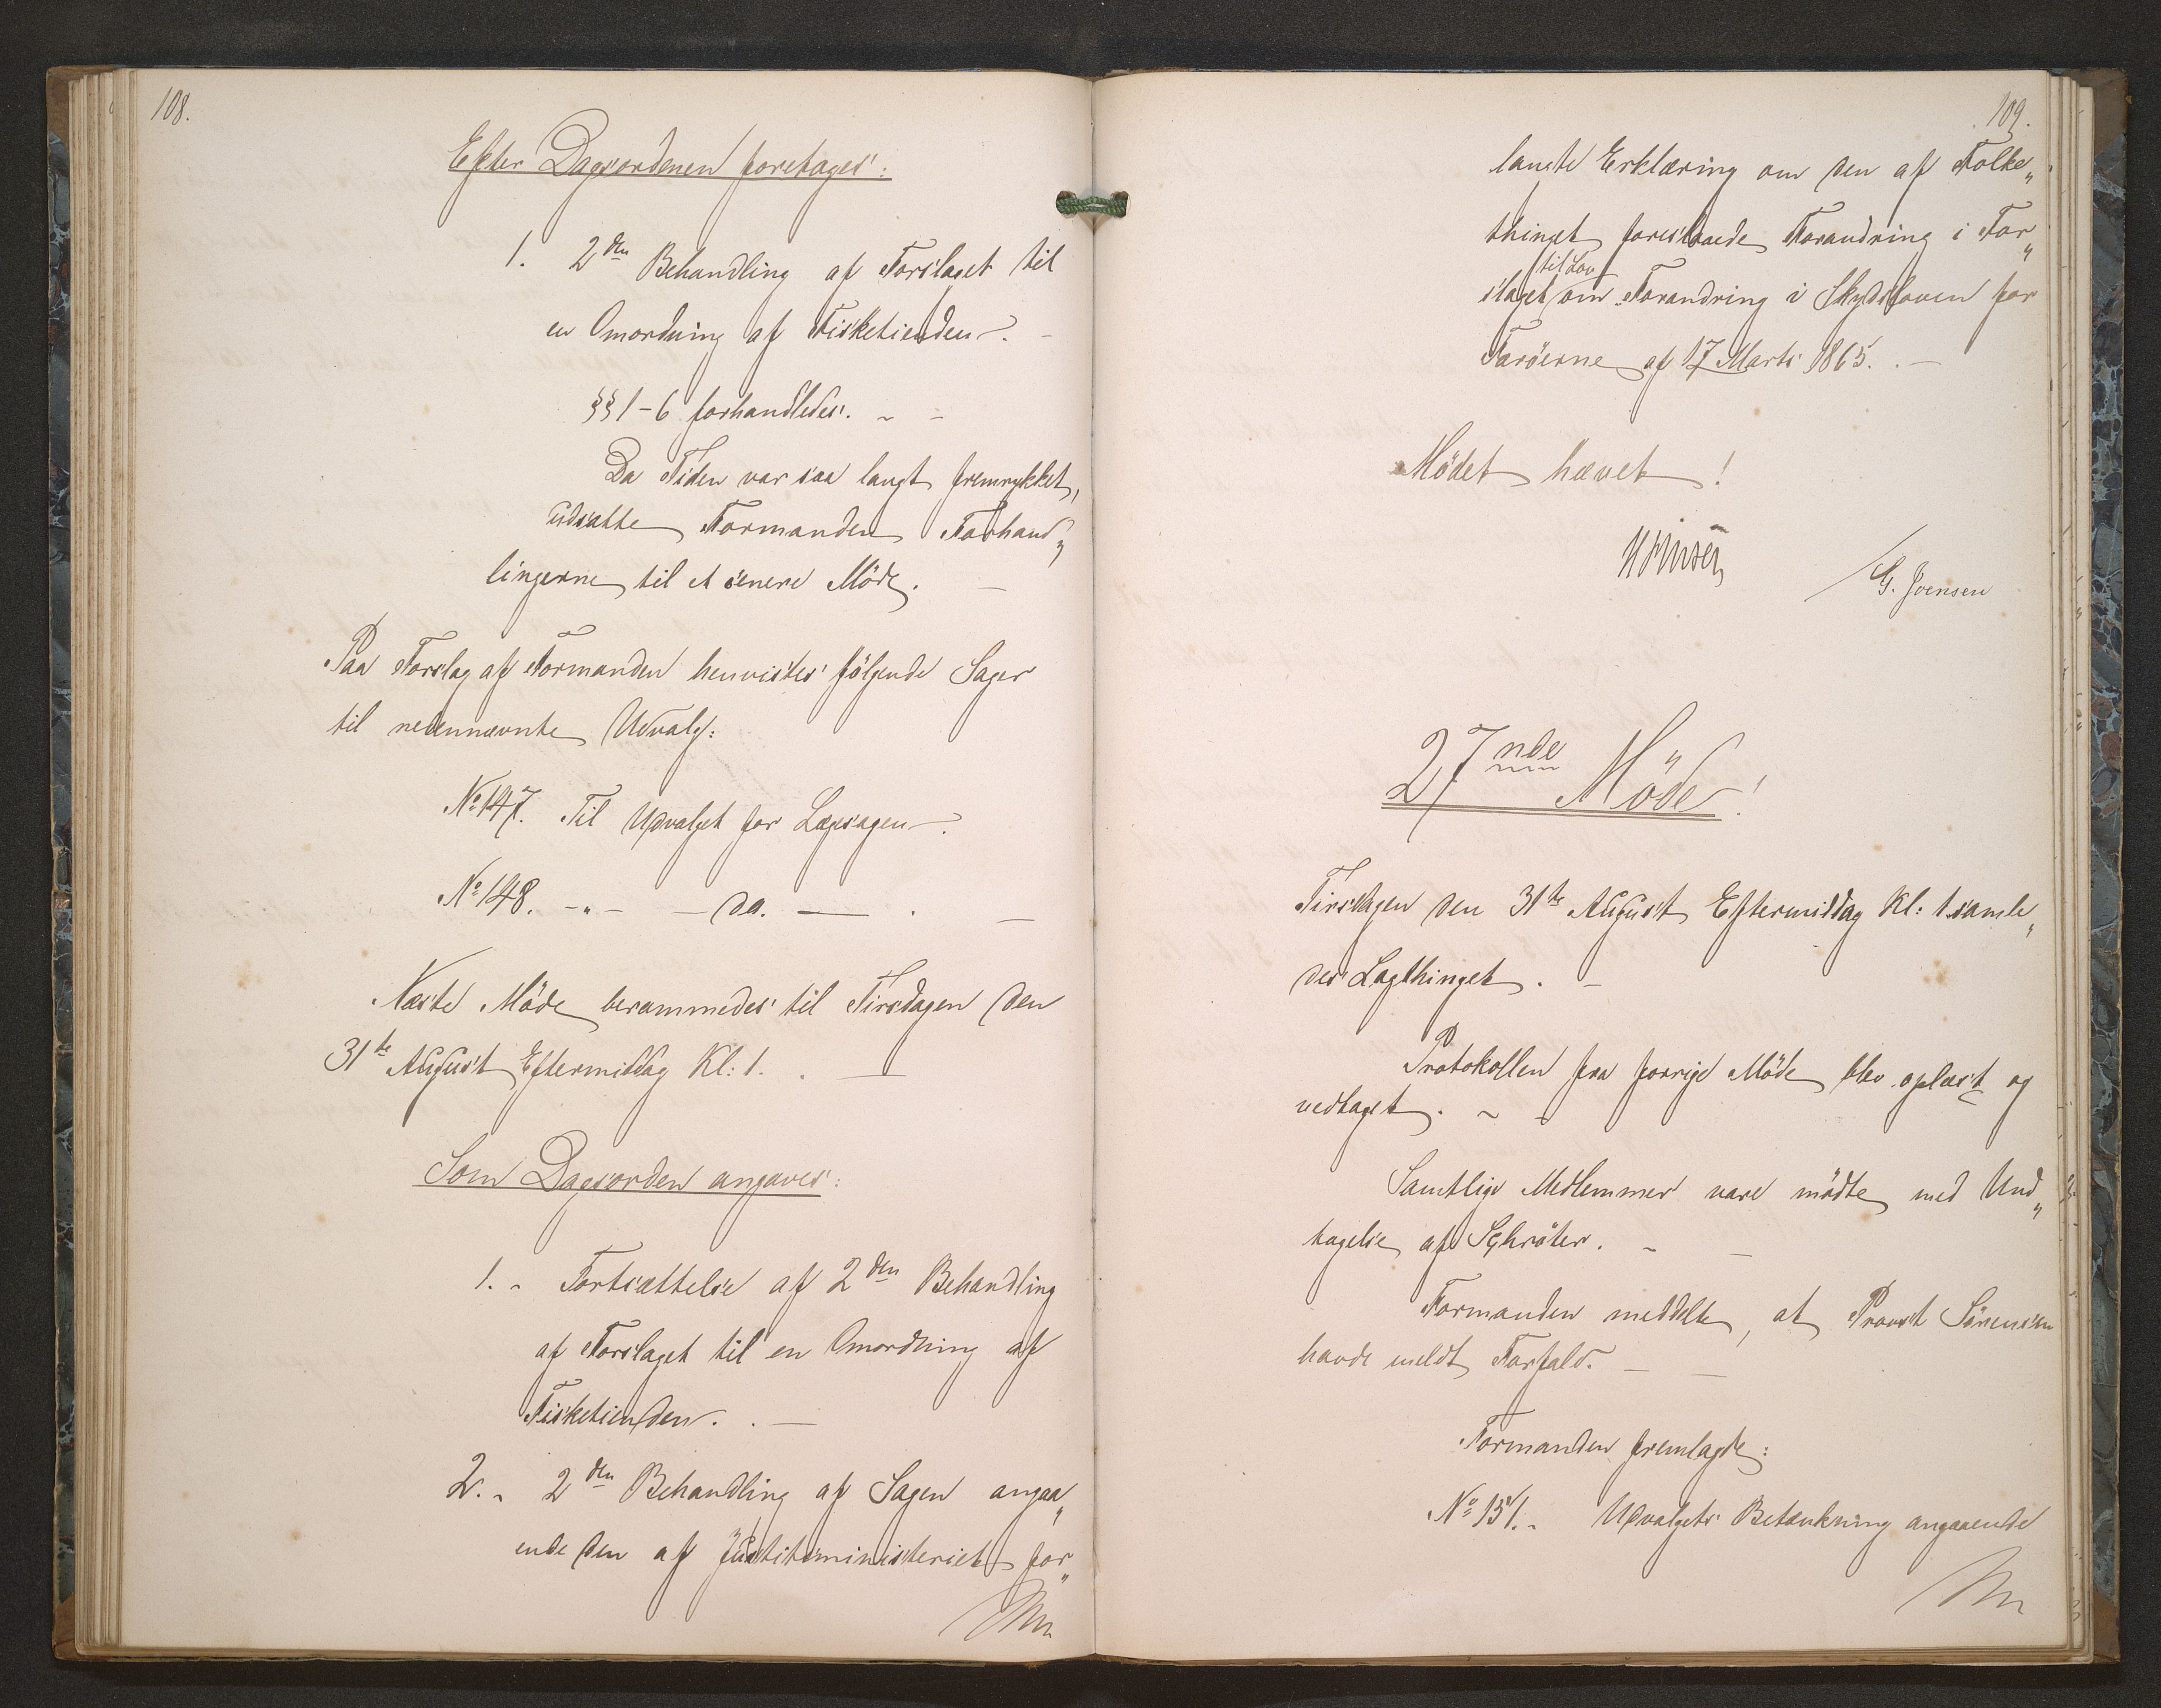 108.
Efter Dagsordenen foretages:
1. 2den Behandling af Forslaget til
en Omordning af Fisketienden. –
§§ 1–6 forhandledes. – –
Da Tiden var saa langt fremrykket,
udsatte Formanden Forhand„
lingerne til et senere Møde. –
Paa Forslag af Formanden henvistes følgende Sager
til nedennævnte Udvalg:
No 147. Til Udvalget for Lægesagen –.
No 148. -„- – do. – . –
Næste Møde berammedes til Tirsdagen den
31te August Eftermiddag Kl: 1. . –
Som Dagsorden angaves:
1. - Fortsættelse af 2den Behandling
af Forslaget til en Omordning af
Fisketienden. . –
2. - 2den Behandling af Sagen angaa„
ende den af Justitsministeriet for„
109.
langte Erklæring om den af Folke„
thinget foreslaaede Forandring i For„
til Lov
slaget om Forandring i Skydsloven for
Færøerne af 17 Marts 1865. . –
Mödet hævet!
G. Joensen
27nde Möde!
Tirsdagen den 31te August Eftermiddag Kl: 1 samle„
des Lagthinget. –
Protokollen fra forrige Möde blev oplæst og
vedtaget. – –
Samtlige Medlemmer vare mödte med Und„
tagelse af Schröter. – –
Formanden meddelte, at Provst Sörensen
havde meldt Forfald. – –
Formanden fremlagde:
No 151. - Udvalgets Betænkning angaaende